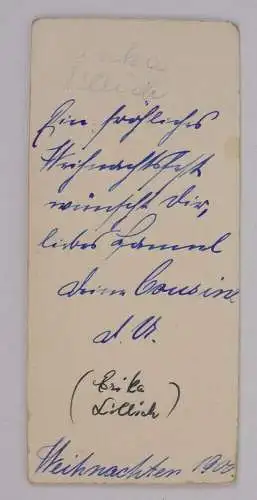 Erika
Ein fröhliches
Weihnachtsfest
wünscht Dir,
liebes
deine Cousine
d. U.
(Erika
Lillich)
Weihnachten 1909